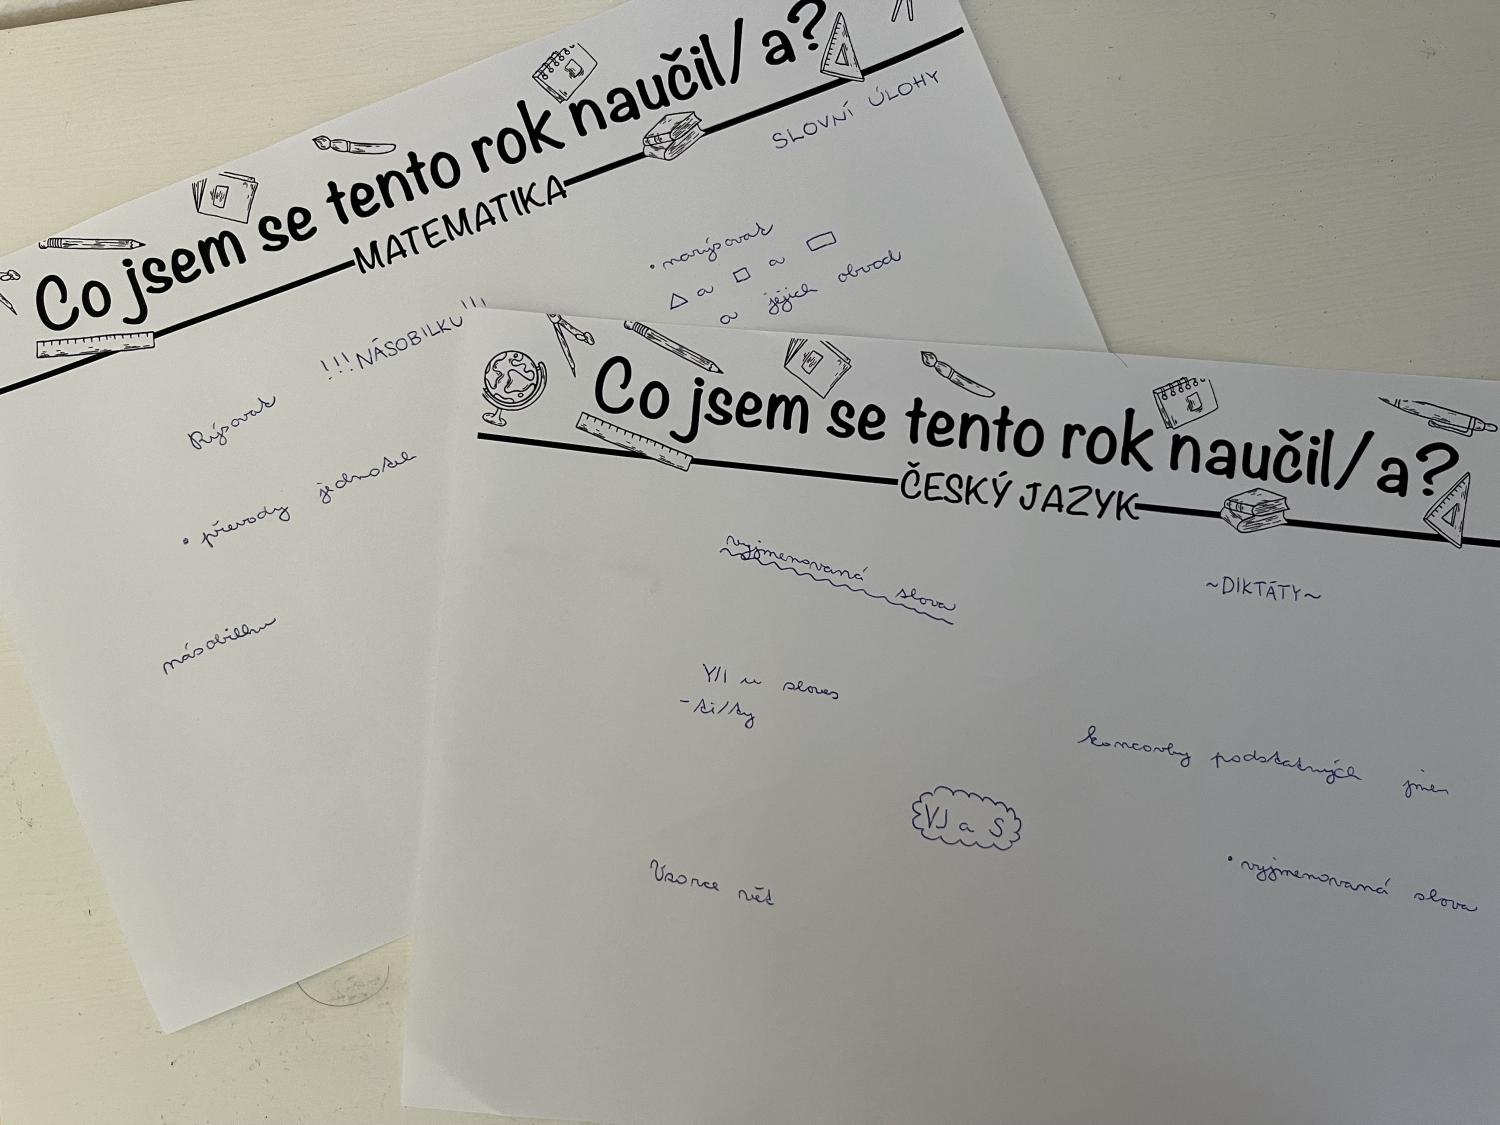 Co jsem se tento rok naučil/a?
MATEMATIKA
SLOVNÍ ÚLOHY
• narýsovat
△ a □ a ▭
a jejich obvod
!!!NÁSOBILKU!!!
Rýsovat
• převody jednotek
násobilku
Co jsem se tento rok naučil/a?
ČESKÝ JAZYK
vyjmenovaná slova
~DIKTÁTY~
Y/I u sloves
-ti/ty
koncovky podstatných jmen
VJ a S
Vzorce vět
• vyjmenovaná slova